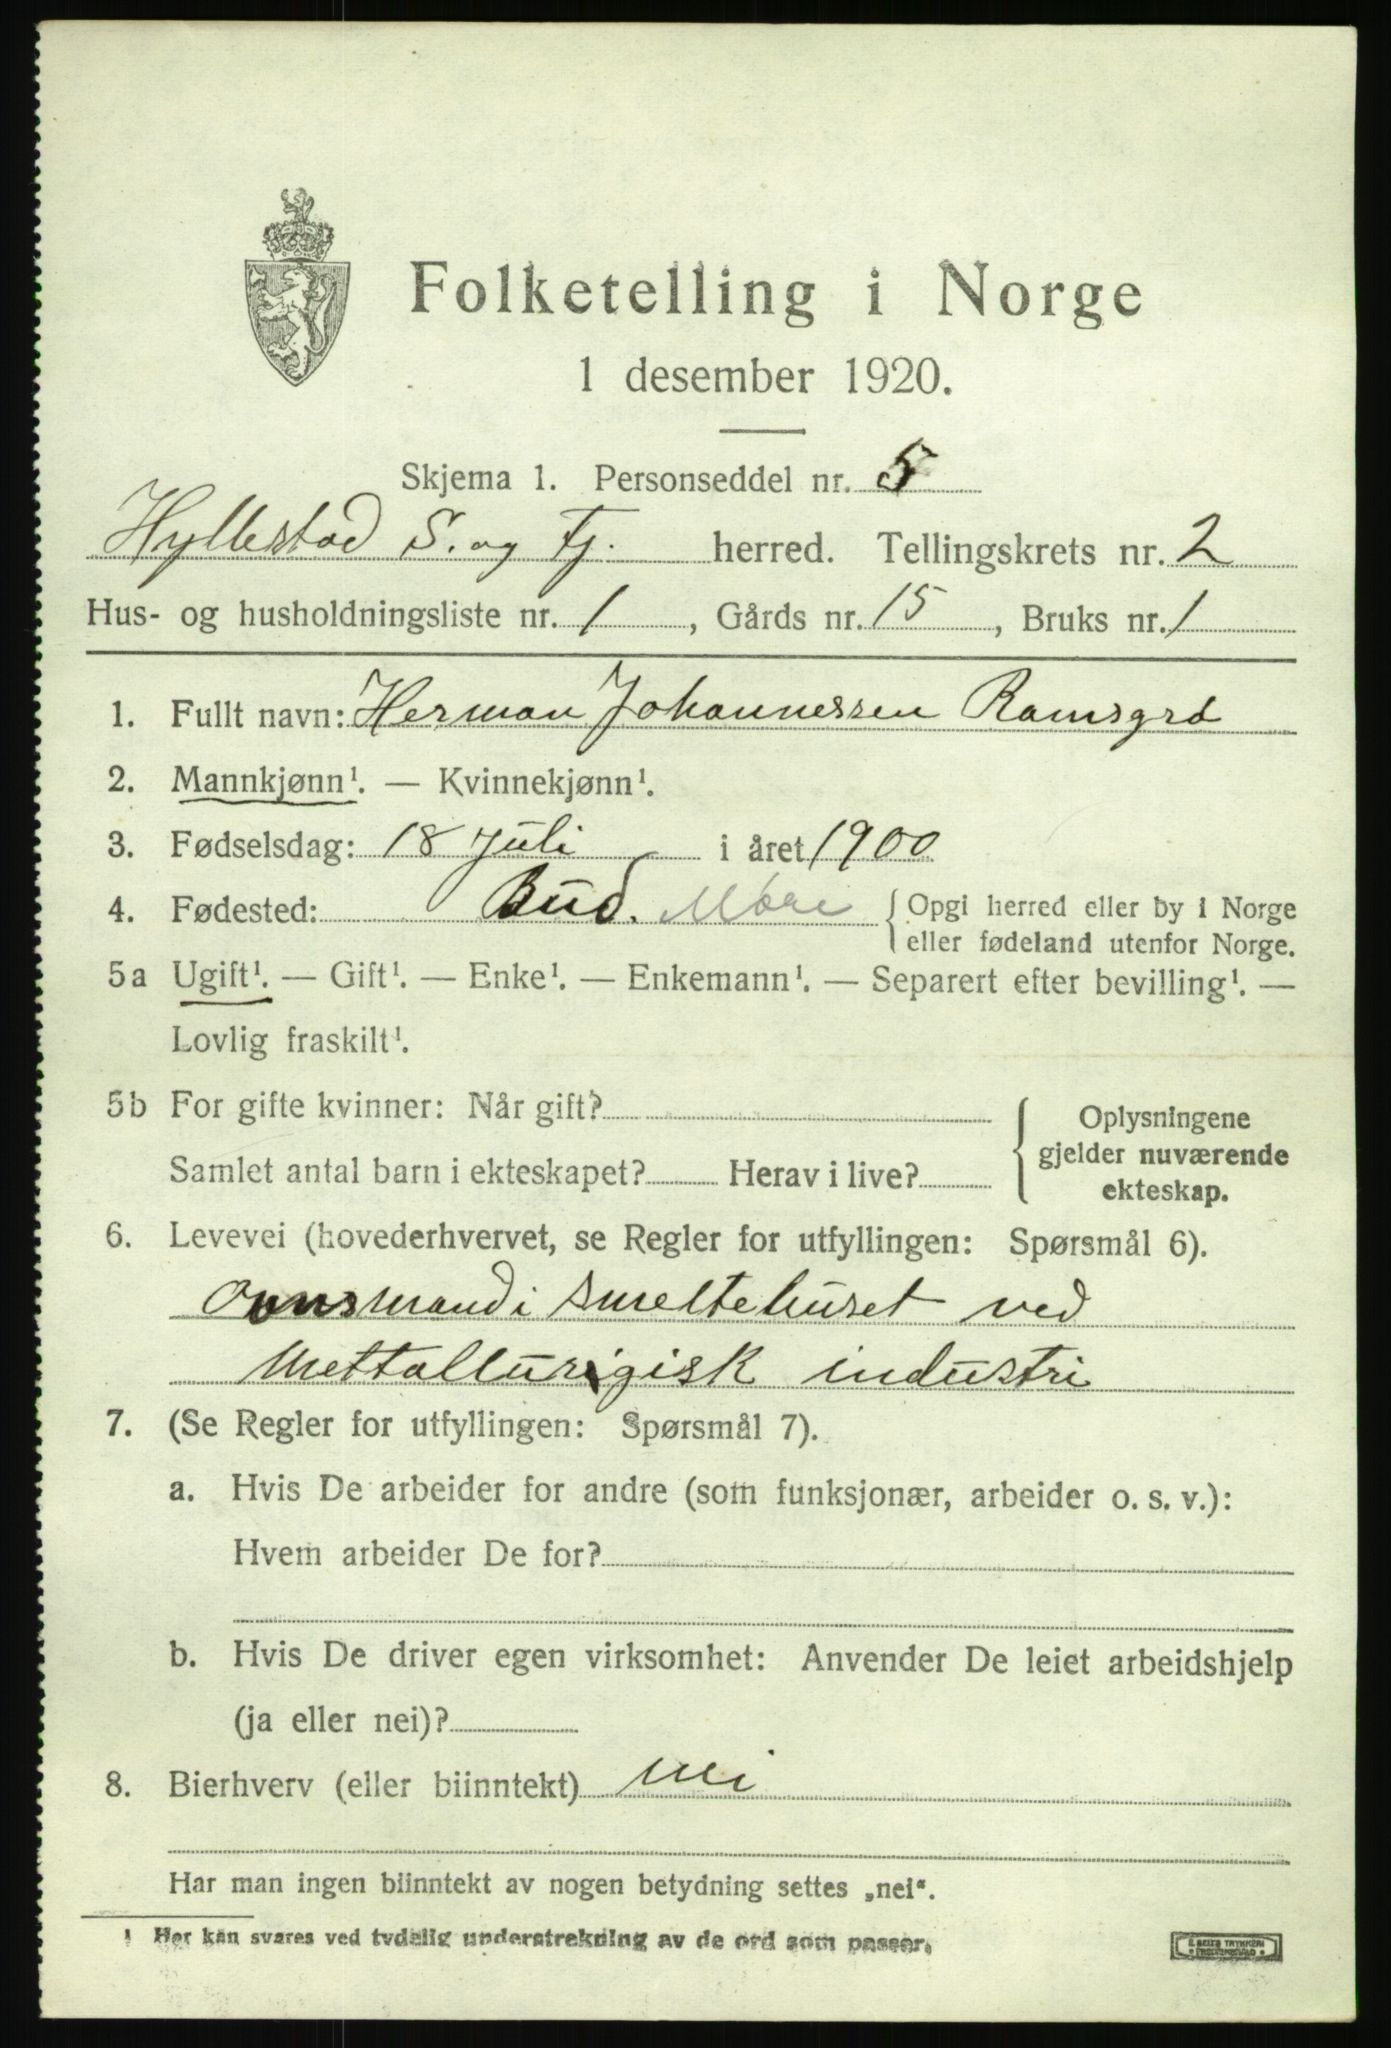 Folketelling i Norge
1 desember 1920.
Skjema 1. Personseddel nr. 5
Hyllestad S. og Fj. herred. Tellingskrets nr. 2
Hus- og husholdningsliste nr. 1, Gårds nr. 15, Bruks nr. 1
1. Fullt navn: Herman Johannessen Ramsgrd
2. Mannkjønn¹. — Kvinnekjønn¹.
3. Fødselsdag: 18 Juli i året 1900
4. Fødested: Bud. Møre { Opgi herred eller by i Norge
eller fødeland utenfor Norge.
5a Ugift¹. — Gift¹. — Enke¹. — Enkemann¹. — Separert efter bevilling¹. —
Lovlig fraskilt¹.
5b For gifte kvinner: Når gift?
Samlet antal barn i ekteskapet? Herav i live?
Oplysningene
gjelder nuværende
ekteskap.
6. Levevei (hovederhvervet, se Regler for utfyllingen: Spørsmål 6).
Ovnsmand i smeltehuset ved
Mettallurgisk industri
7. (Se Regler for utfyllingen: Spørsmål 7).
a. Hvis De arbeider for andre (som funksjonær, arbeider o. s. v.):
Hvem arbeider De for?
b. Hvis De driver egen virksomhet: Anvender De leiet arbeidshjelp
(ja eller nei)?
8. Bierhverv (eller biinntekt) nei
Har man ingen biinntekt av nogen betydning settes „nei“.
¹ Her kan svares ved tydelig understrekning av de ord som passer.